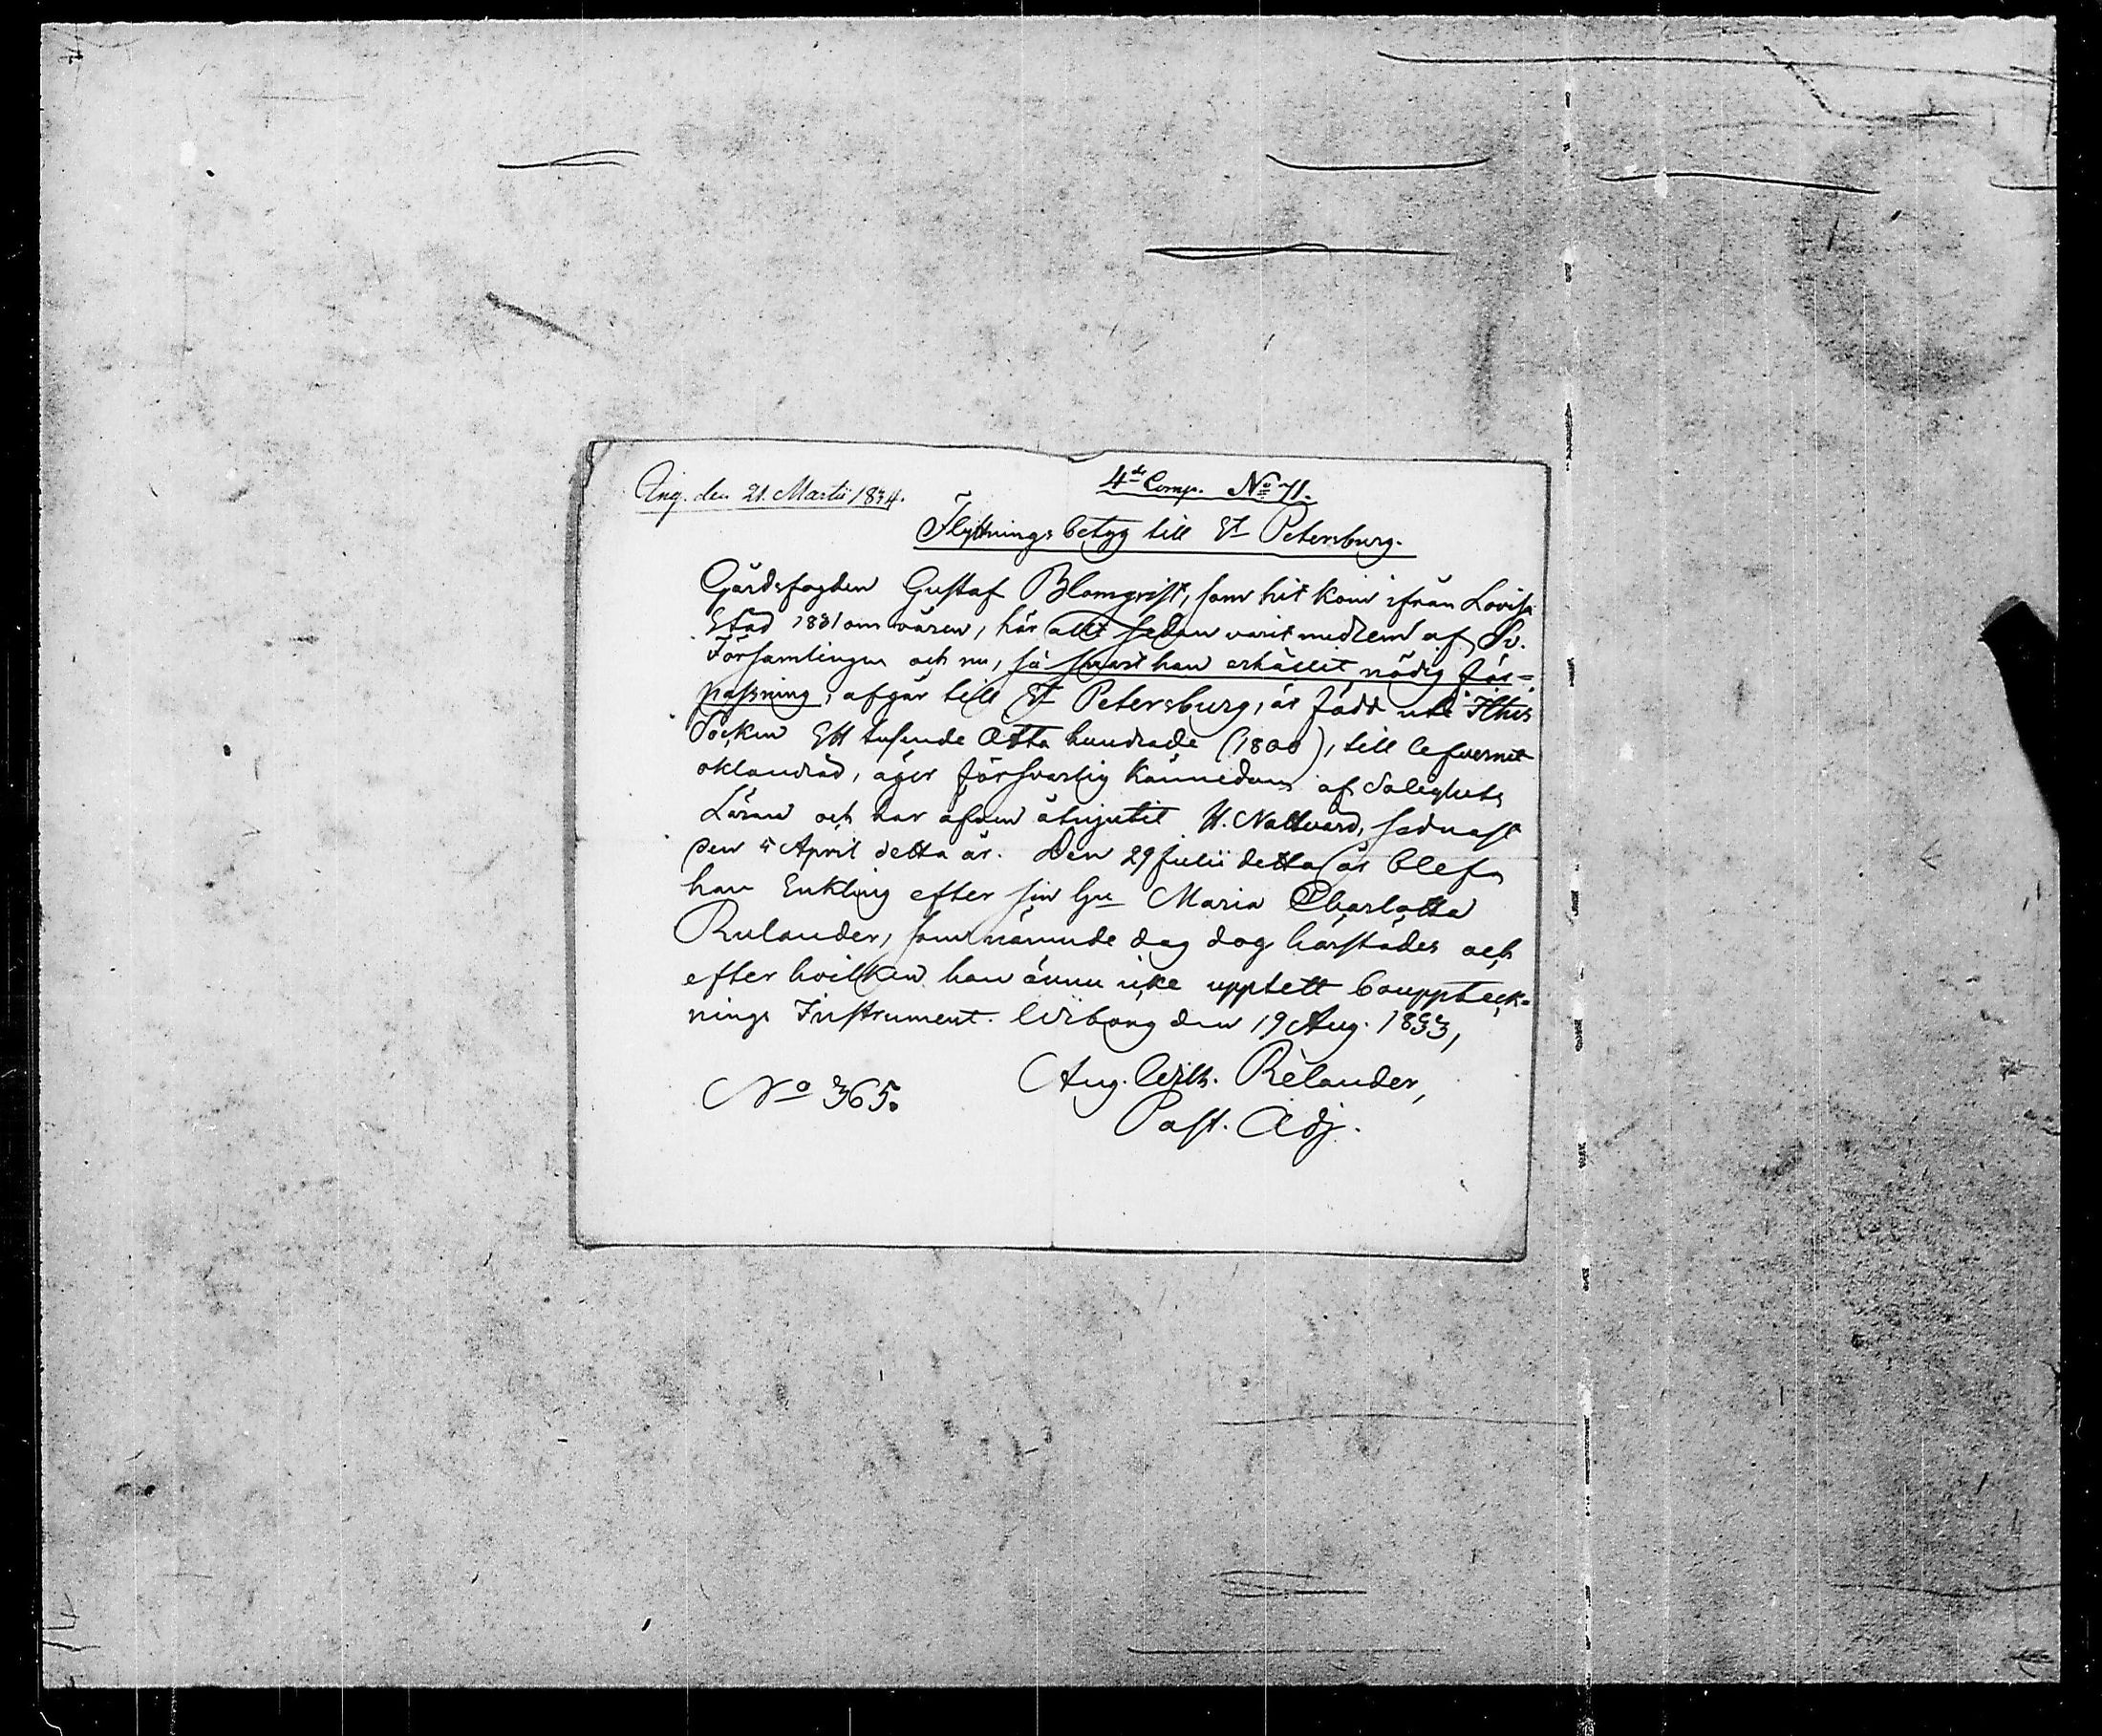 Ang. den 21. Martii 1834.
4de Comp. No 71.
Flyttnings betyg till St Petersburg.
Gårdsfogden Gustaf Blomqvist, som hit kom ifrån Lovisa
Stad 1831 om våren, här allt sedan varit medlem af Sv.
Församlingen och nu, så snart han erhållit nödig för-
passning, afgår till St Petersburg, är född uti Ithis
Socken Ett tusende Åtta hundrade (1800), till lefvernet
oklandrad, äger försvarlig kännedom af Salighets
Läran och har äfven åtnjutit H. Nattvard, sednast
den 5 April detta år. Den 29 Julii detta år blef
han Enkling efter sin Hu Maria Charlotta
Rulander, som nämnde dag dog härstädes och
efter hvilken han ännu icke upptett bouppteck-
nings Instrument. Wiborg den 19 Aug. 1833,
Aug. Wilh. Relander,
No 365.
Past. Adj.